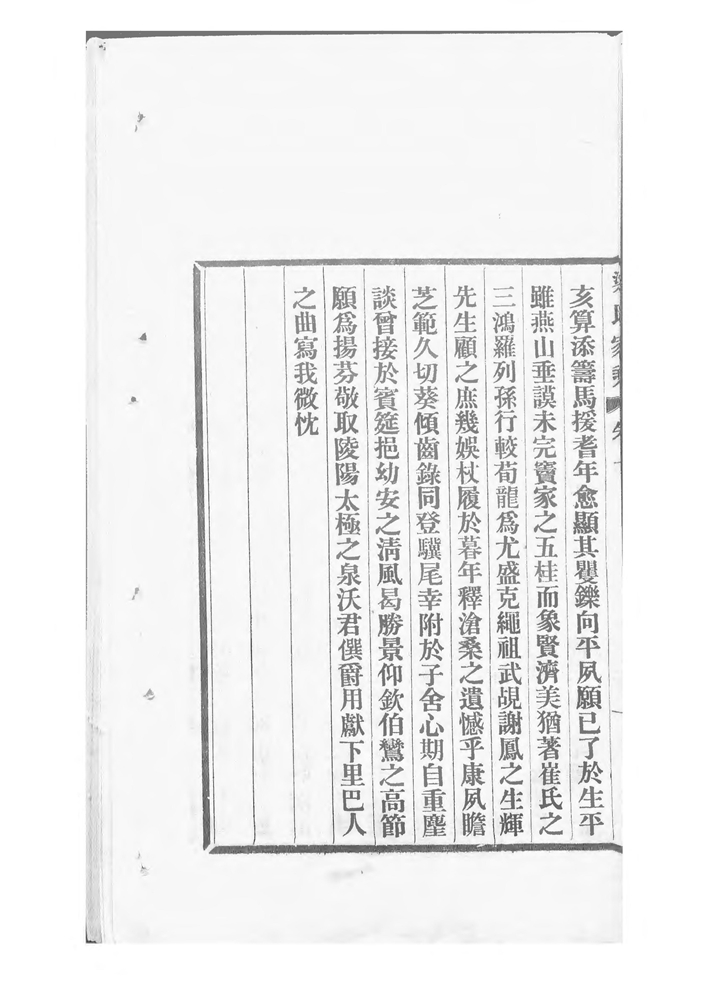 家
亥算添籌馬援耆年愈顯其矍鑠向平夙願已了於生平
雖燕山垂謨未完竇家之五桂而象賢濟美猶著崔氏之
三鴻羅列孫行較荀龍爲尤盛克繩祖武覘謝鳳之生輝
先生顧之庶幾娛杖履於暮年釋滄桑之遺憾乎康夙瞻
芝範久切葵傾齒錄同登驥尾幸附於子舍心期自重麈
談曾接於賓筵挹幼安之清風曷勝景仰欽伯鸞之高節
願爲揚芬敬取陵陽太極之泉沃君僎爵用獻下里巴人
之曲寫我微忱